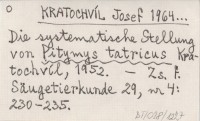 KRATOCHVÍL Josef 1964...
Die systematische Stellung
von Pitymys tatricus Kra-
tochvíl, 1952. — Zs. f.
Säugetierkunde 29, nr 4:
230-235.